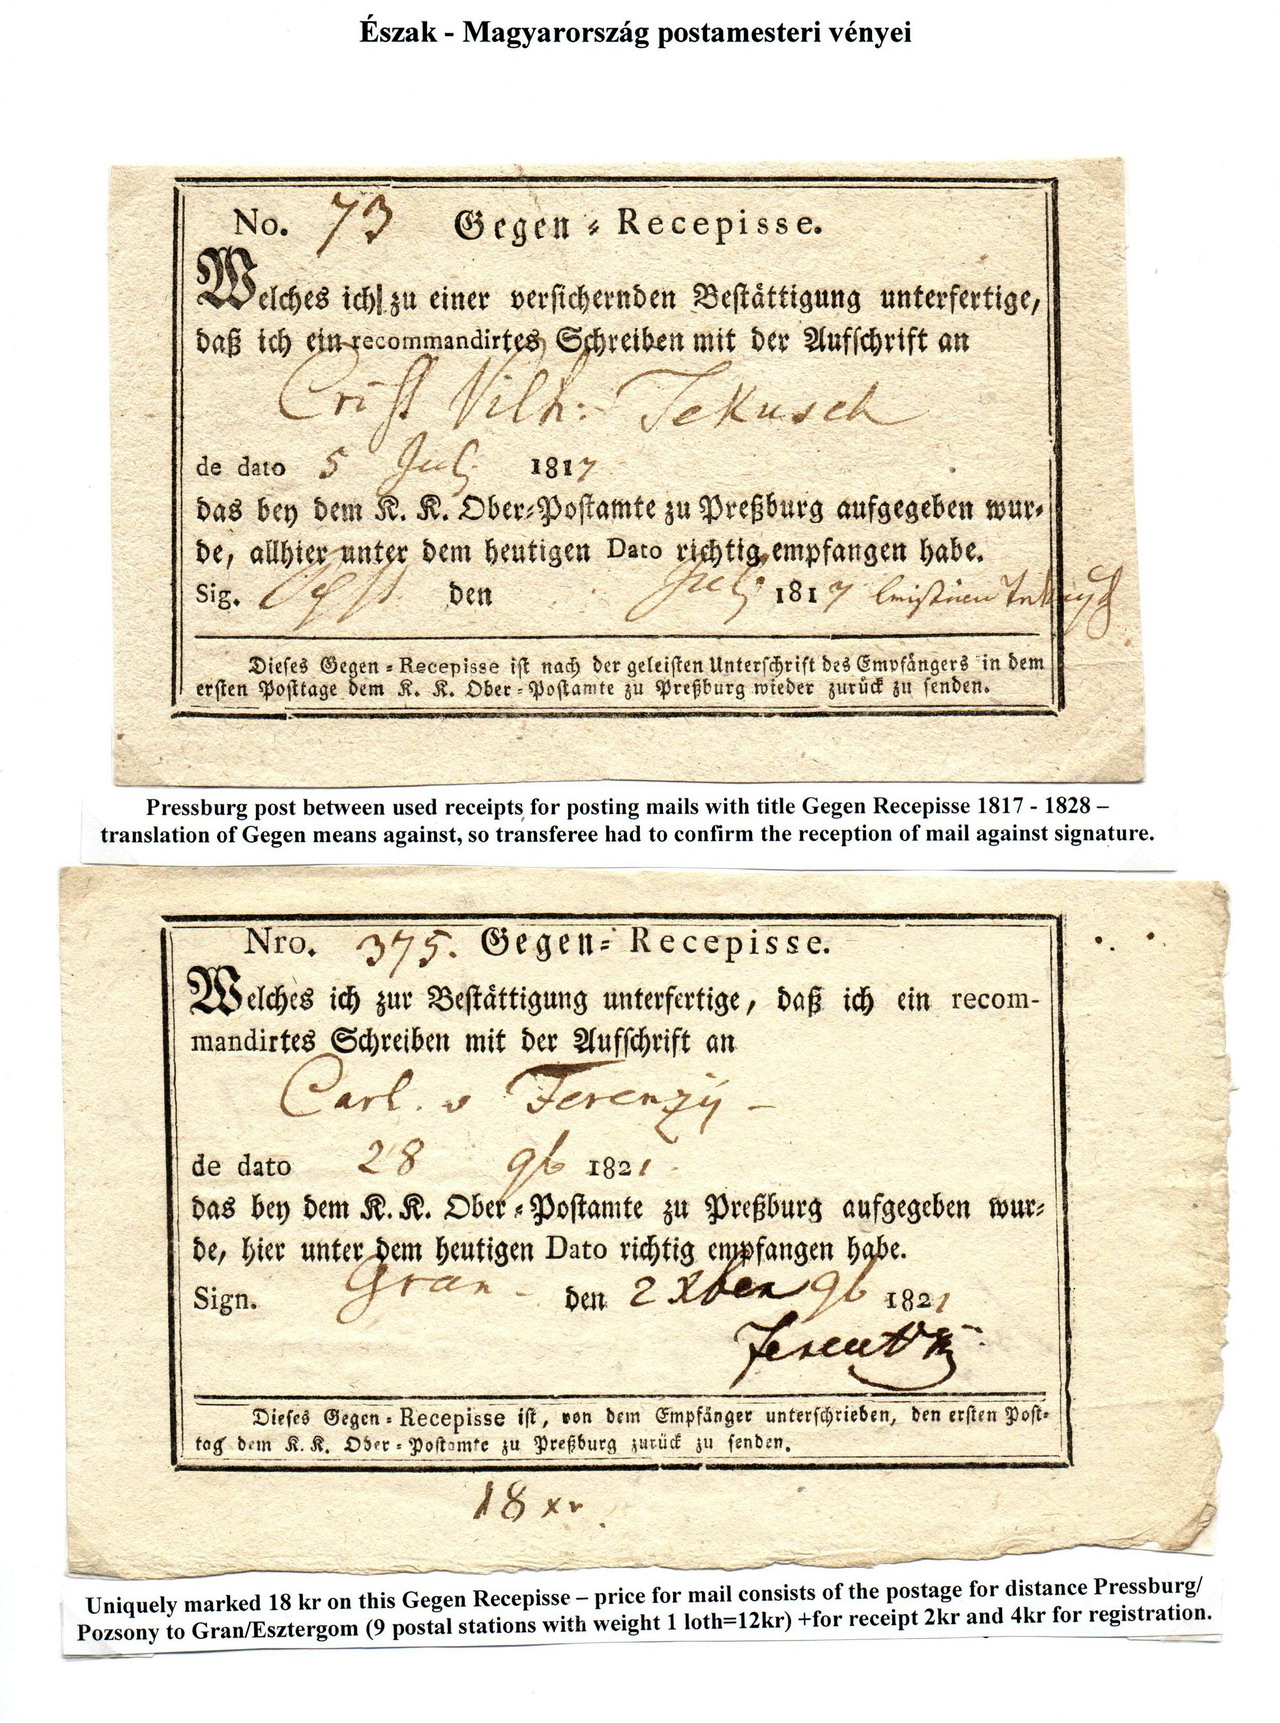 Észak - Magyarország postamesteri vényei
No. 73 Gegen-Recepisse.
Welches ich zu einer versichernden Bestättigung unterfertige,
daß ich ein recommandirtes Schreiben mit der Aufschrift an
Crist Vilh: Tekusch
de dato 5 July 1817
das bey dem K. K. Ober-Postamte zu Preßburg aufgegeben wur-
de, allhier unter dem heutigen Dato richtig empfangen habe.
Sig. den July 1817
Dieses Gegen-Recepisse ist nach der geleisten Unterschrift des Empfängers in dem
ersten Posttage dem K. K. Ober-Postamte zu Preßburg wieder zurück zu senden.
Pressburg post between used receipts for posting mails with title Gegen Recepisse 1817 - 1828 –
translation of Gegen means against, so transferee had to confirm the reception of mail against signature.
Nro. 375. Gegen-Recepisse.
Welches ich zur Bestättigung unterfertige, daß ich ein recom-
mandirtes Schreiben mit der Aufschrift an
Carl. v Ferenzÿ -
de dato 28 9b 1821.
das bey dem K. K. Ober-Postamte zu Preßburg aufgegeben wur-
de, hier unter dem heutigen Dato richtig empfangen habe.
Sign. Gran - den 2 Xben 9b 1821
Dieses Gegen-Recepisse ist, von dem Empfänger unterschrieben, den ersten Post-
tag dem K. K. Ober-Postamte zu Preßburg zurück zu senden.
18 xr.
Uniquely marked 18 kr on this Gegen Recepisse – price for mail consists of the postage for distance Pressburg/
Pozsony to Gran/Esztergom (9 postal stations with weight 1 loth=12kr) +for receipt 2kr and 4kr for registration.